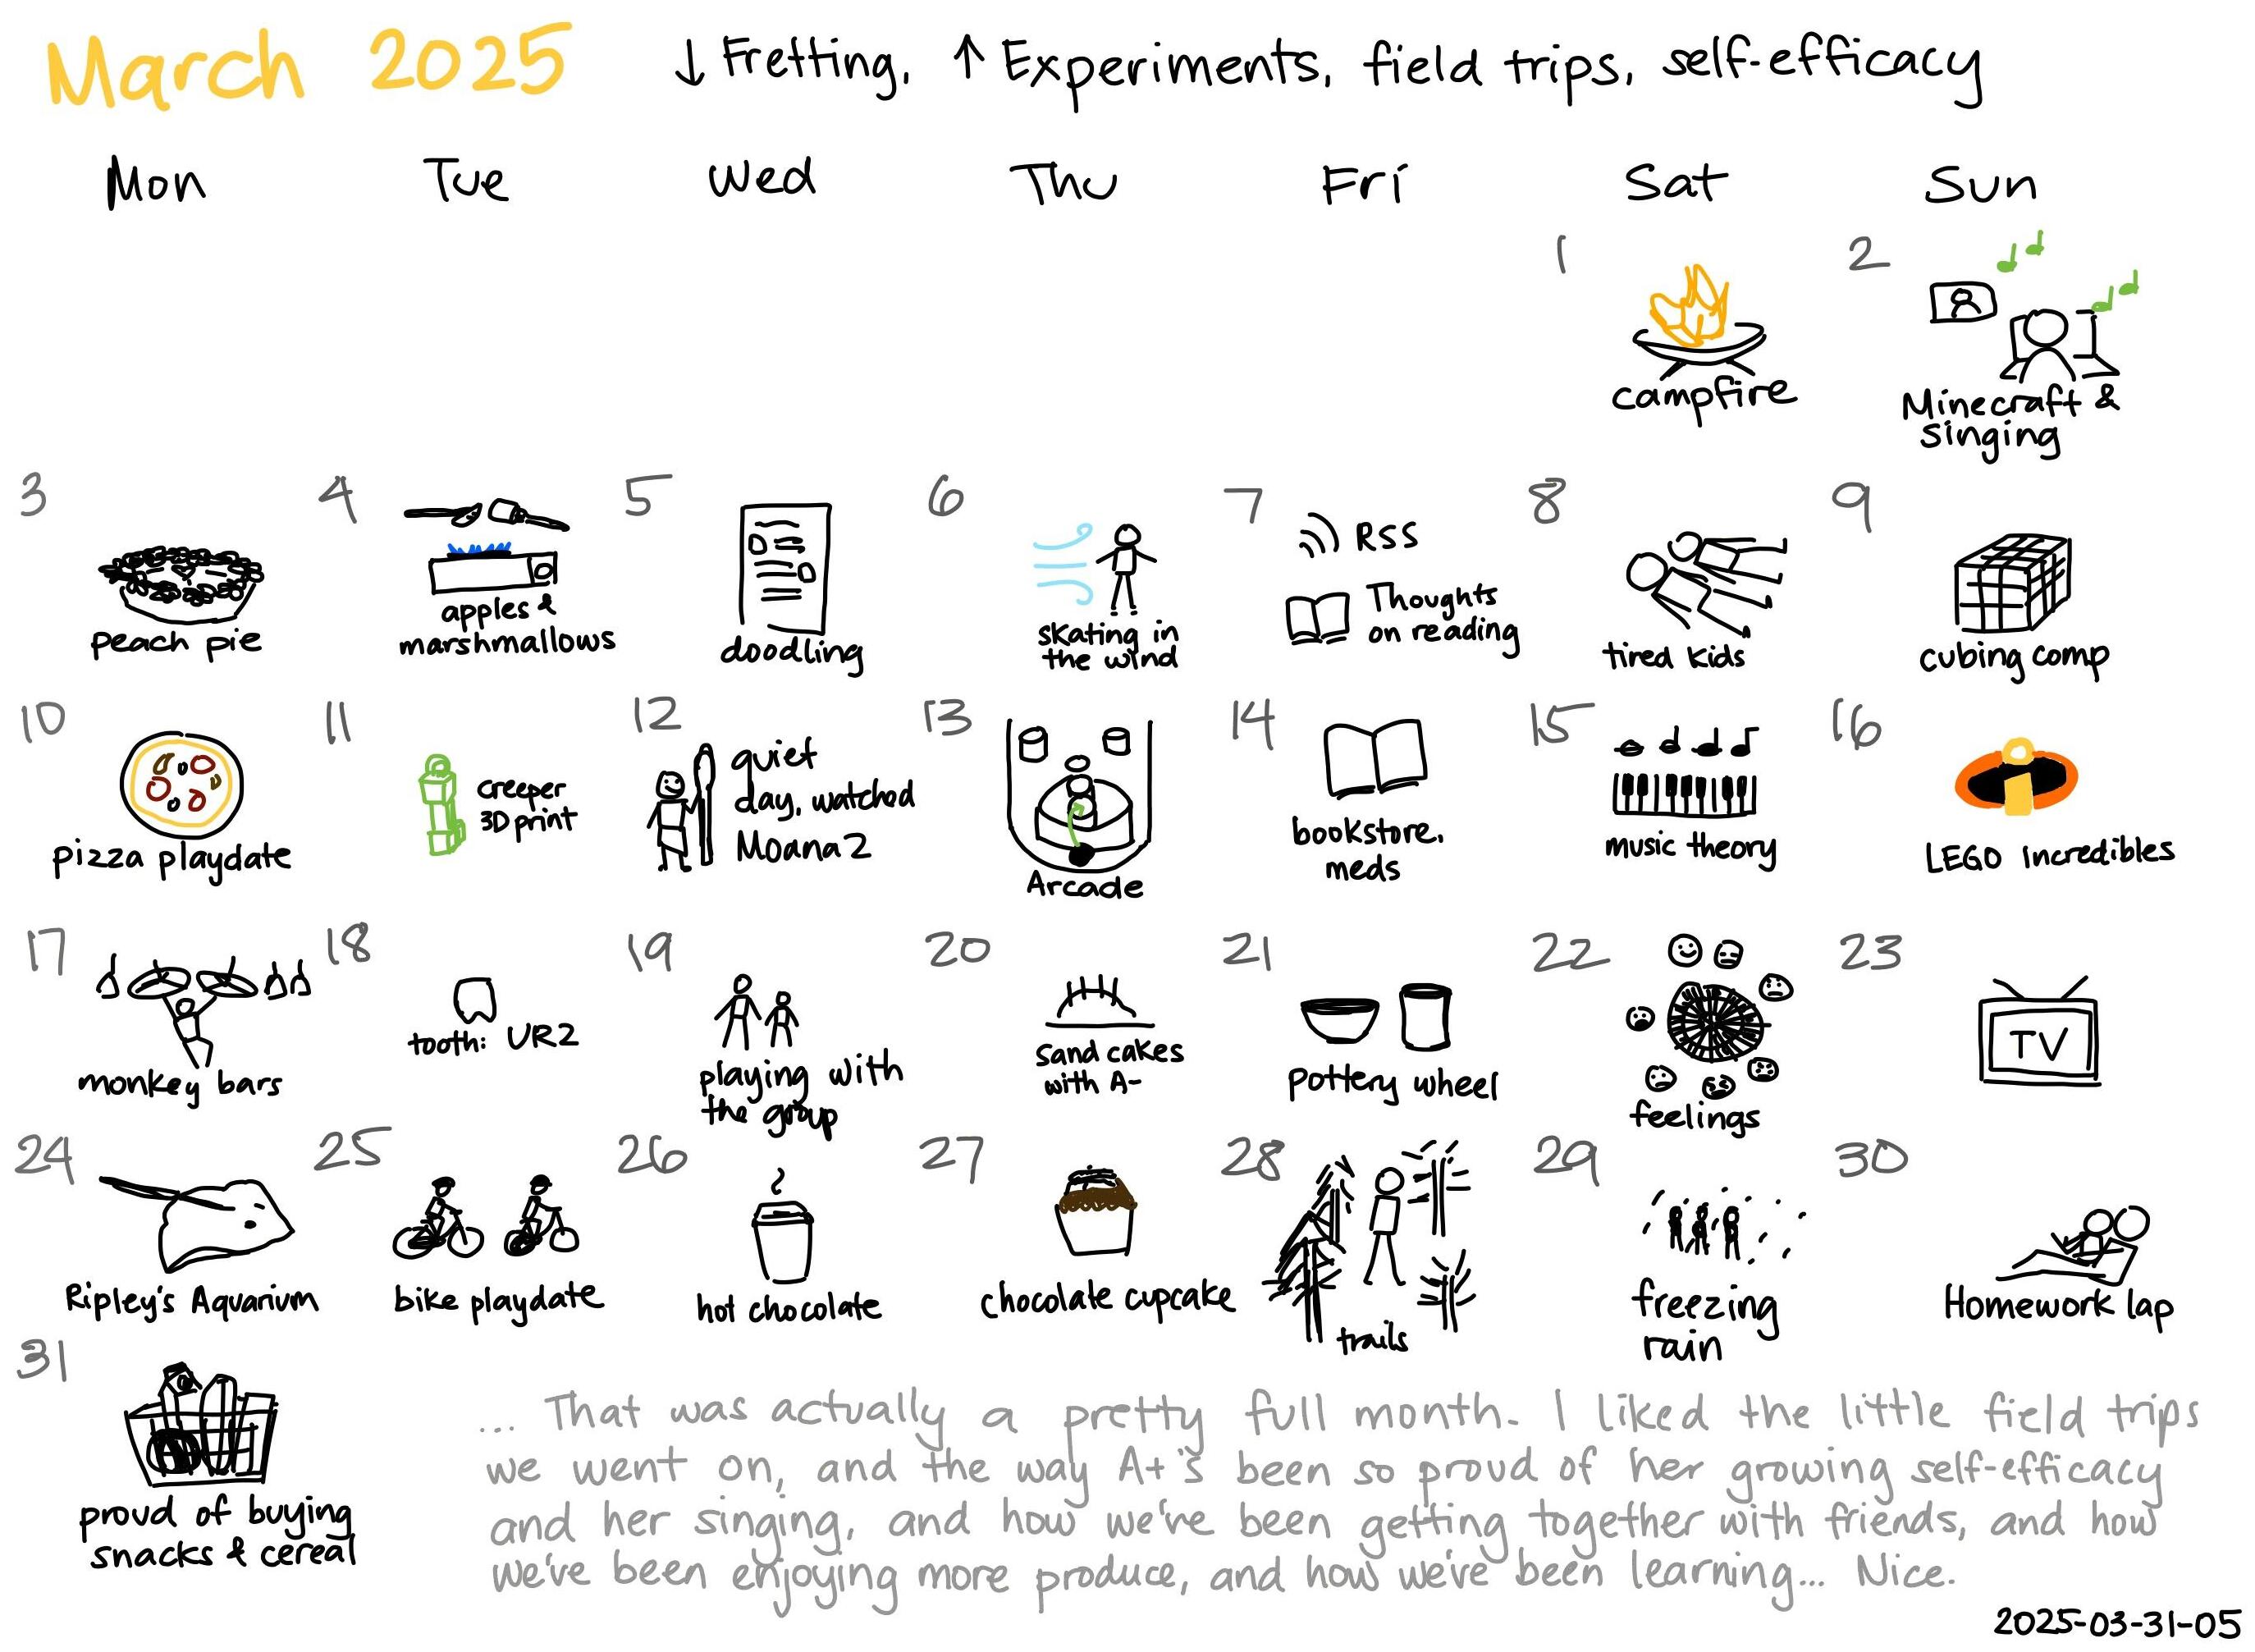 March 2025 ↓ Fretting, ↑ Experiments, field trips, self-efficacy
Mon Tue Wed Thu Fri Sat Sun
1
campfire
2
Minecraft &
singing
3
peach pie
4
apples &
marshmallows
5
doodling
6
skating in
the wind
7
RSS
Thoughts
on reading
8
tired kids
9
cubing comp
10
pizza playdate
11
creeper
3D print
12
quiet
day, watched
Moana 2
13
Arcade
14
bookstore,
meds
15
music theory
16
LEGO Incredibles
17
monkey bars
18
tooth: UR2
19
playing with
the group
20
sand cakes
with A-
21
pottery wheel
22
feelings
23
TV
24
Ripley's Aquarium
25
bike playdate
26
hot chocolate
27
chocolate cupcake
28
trails
29
freezing
rain
30
Homework lap
31
proud of buying
snacks & cereal
... That was actually a pretty full month. I liked the little field trips
we went on, and the way A+'s been so proud of her growing self-efficacy
and her singing, and how we've been getting together with friends, and how
we've been enjoying more produce, and how we've been learning... Nice.
2025-03-31-05